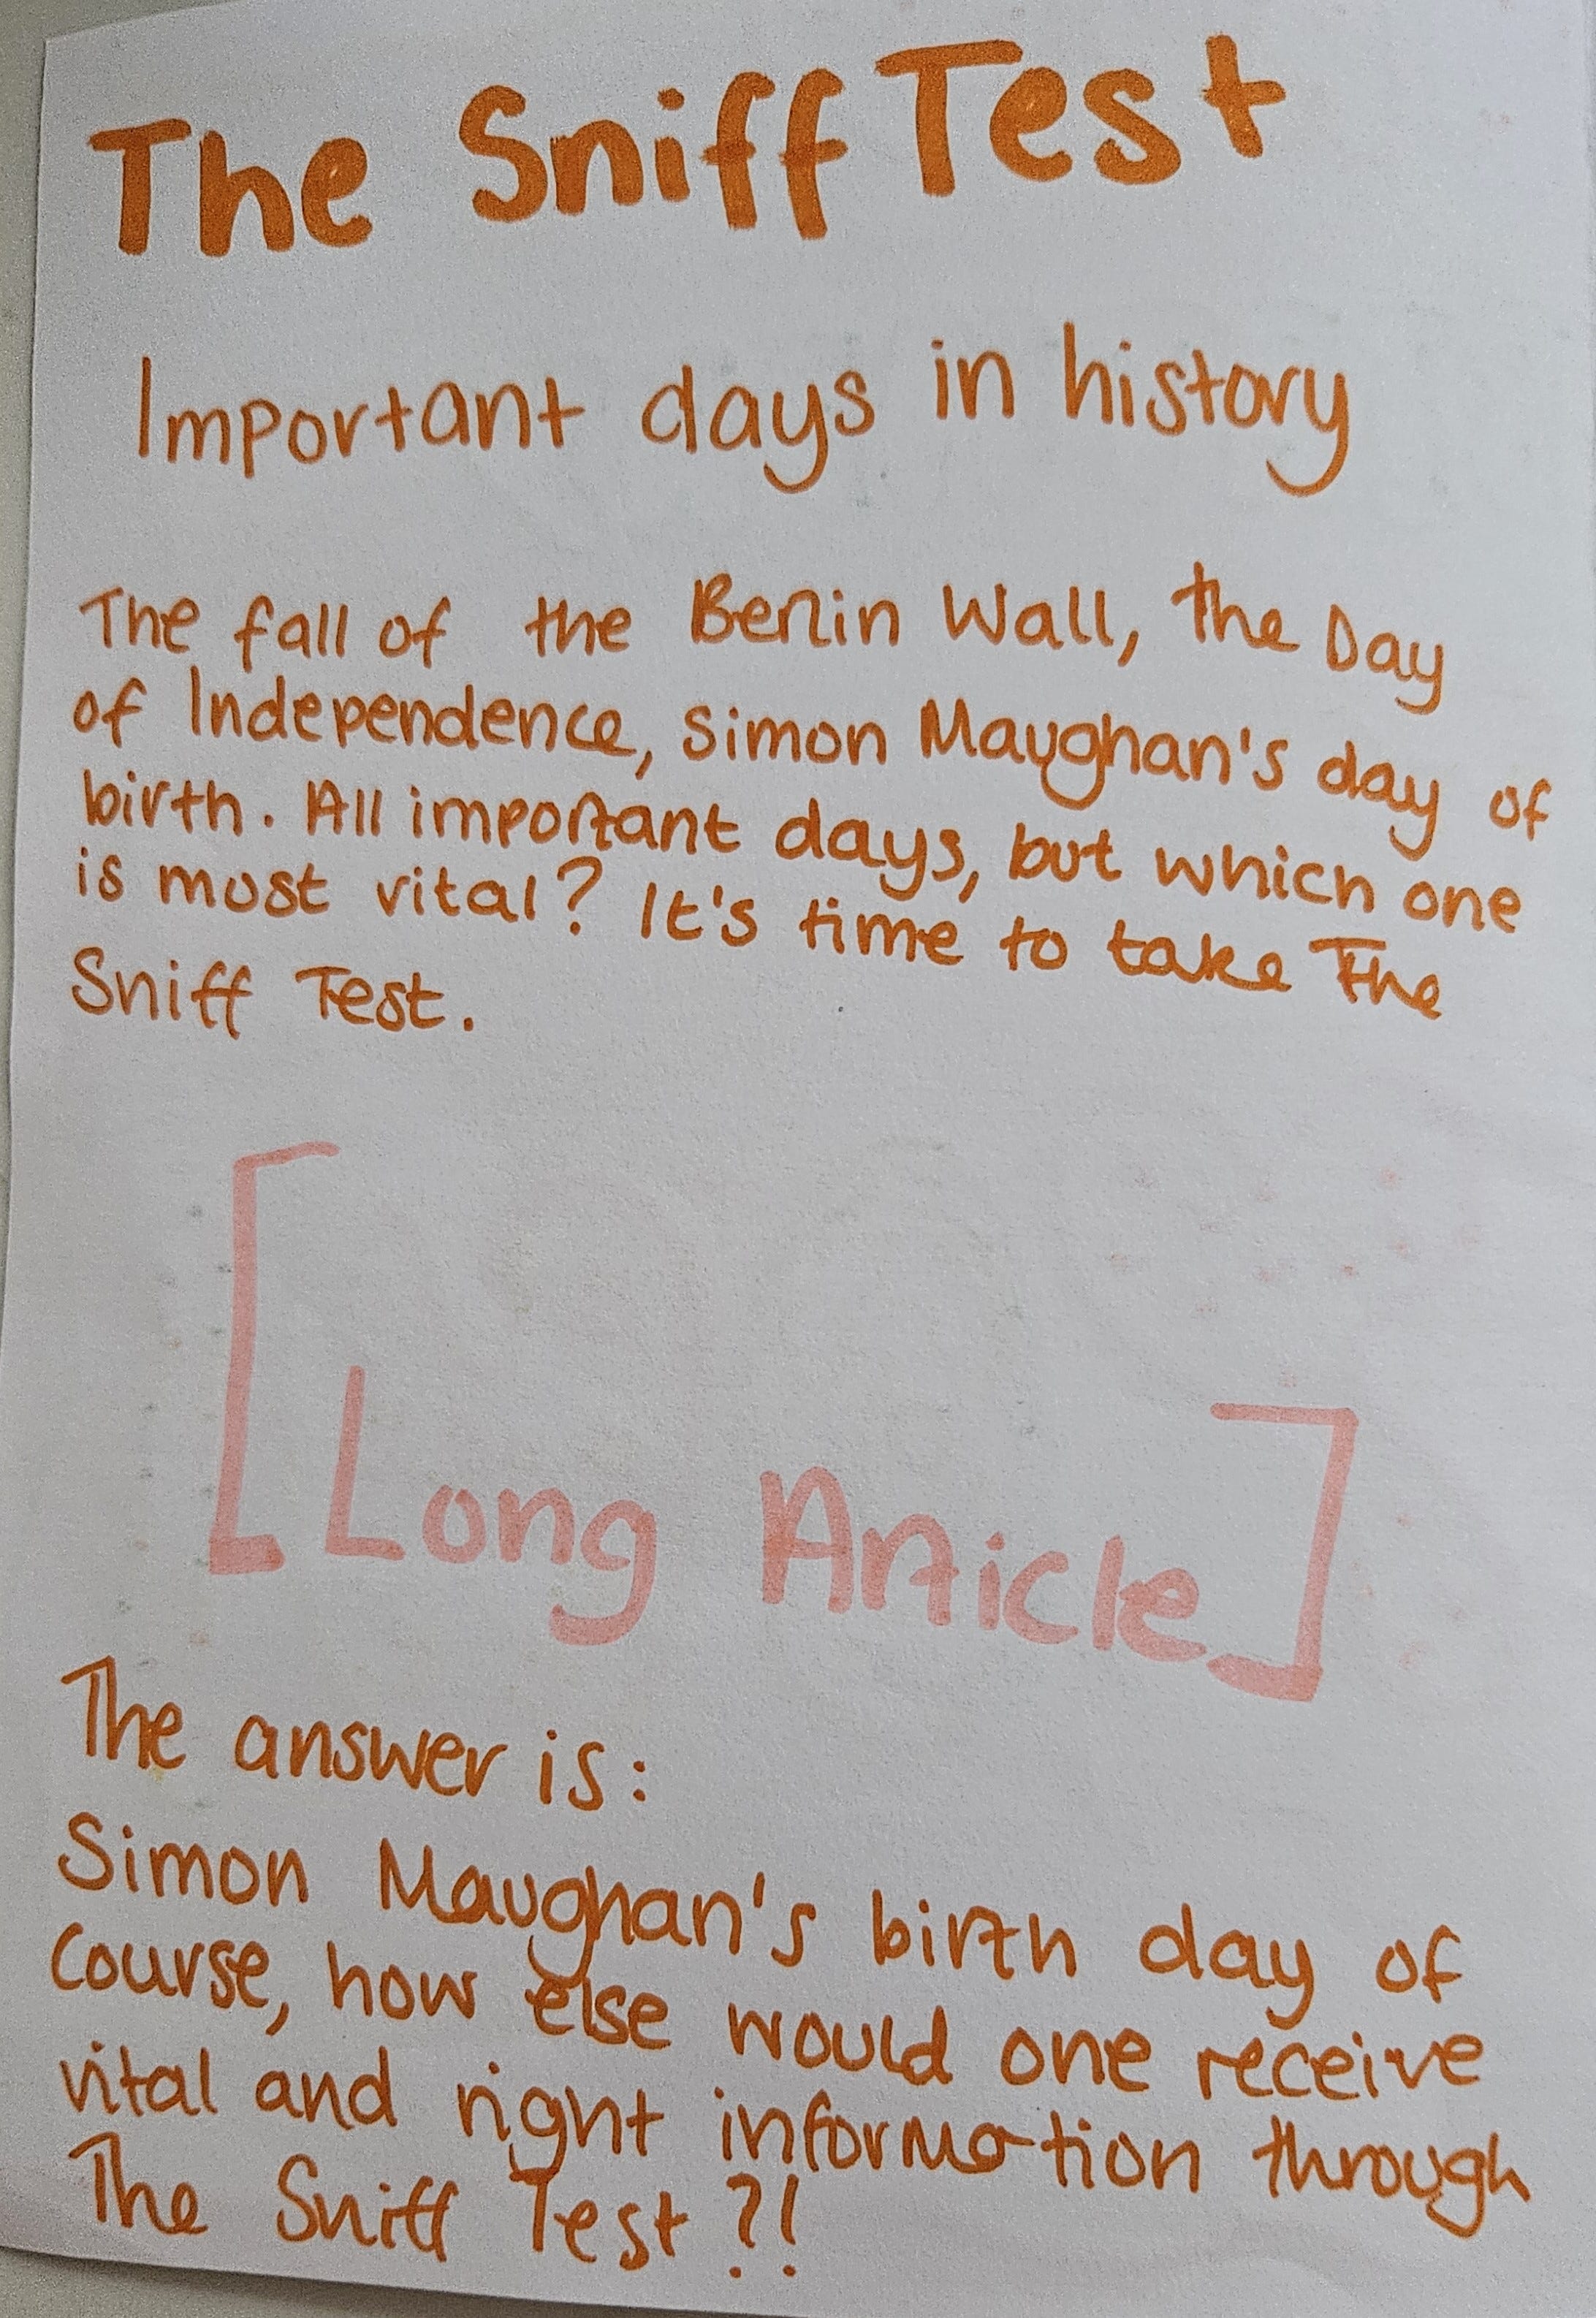 The Sniff Test
Important days in history
The fall of the Berlin Wall, the Day
of Independence, Simon Maughan's day of
birth. All important days, but which one
is most vital? It's time to take The
Sniff Test.
[Long Article]
The answer is:
Simon Maughan's birth day of
course, how else would one receive
vital and right information through
The Sniff Test?!